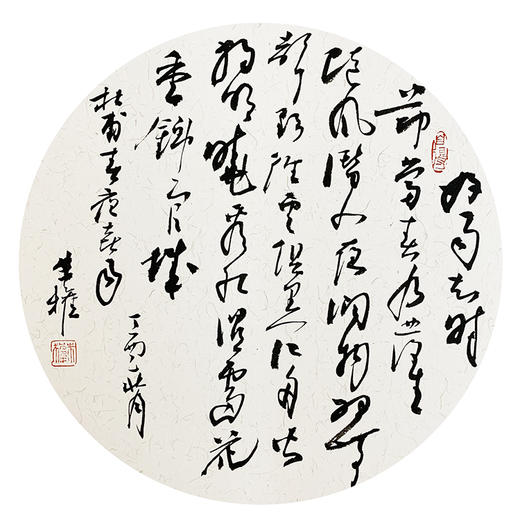 好雨知时
節當春乃發生
随风潜入夜润物细无
声野径云俱黑江船火
独明晓看红湿处花
重錦官城
杜甫春夜喜雨
丁酉 月